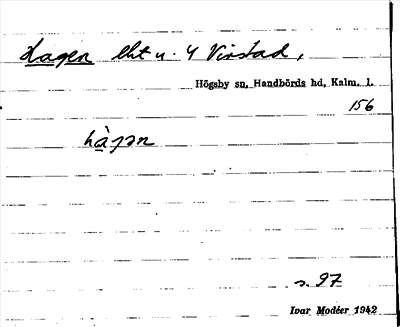 Hagen lht u. 4 Virstad,
Högsby sn, Handbörds hd, Kalm. l.
156
hàgən
s. 97
Ivar Modéer 1942